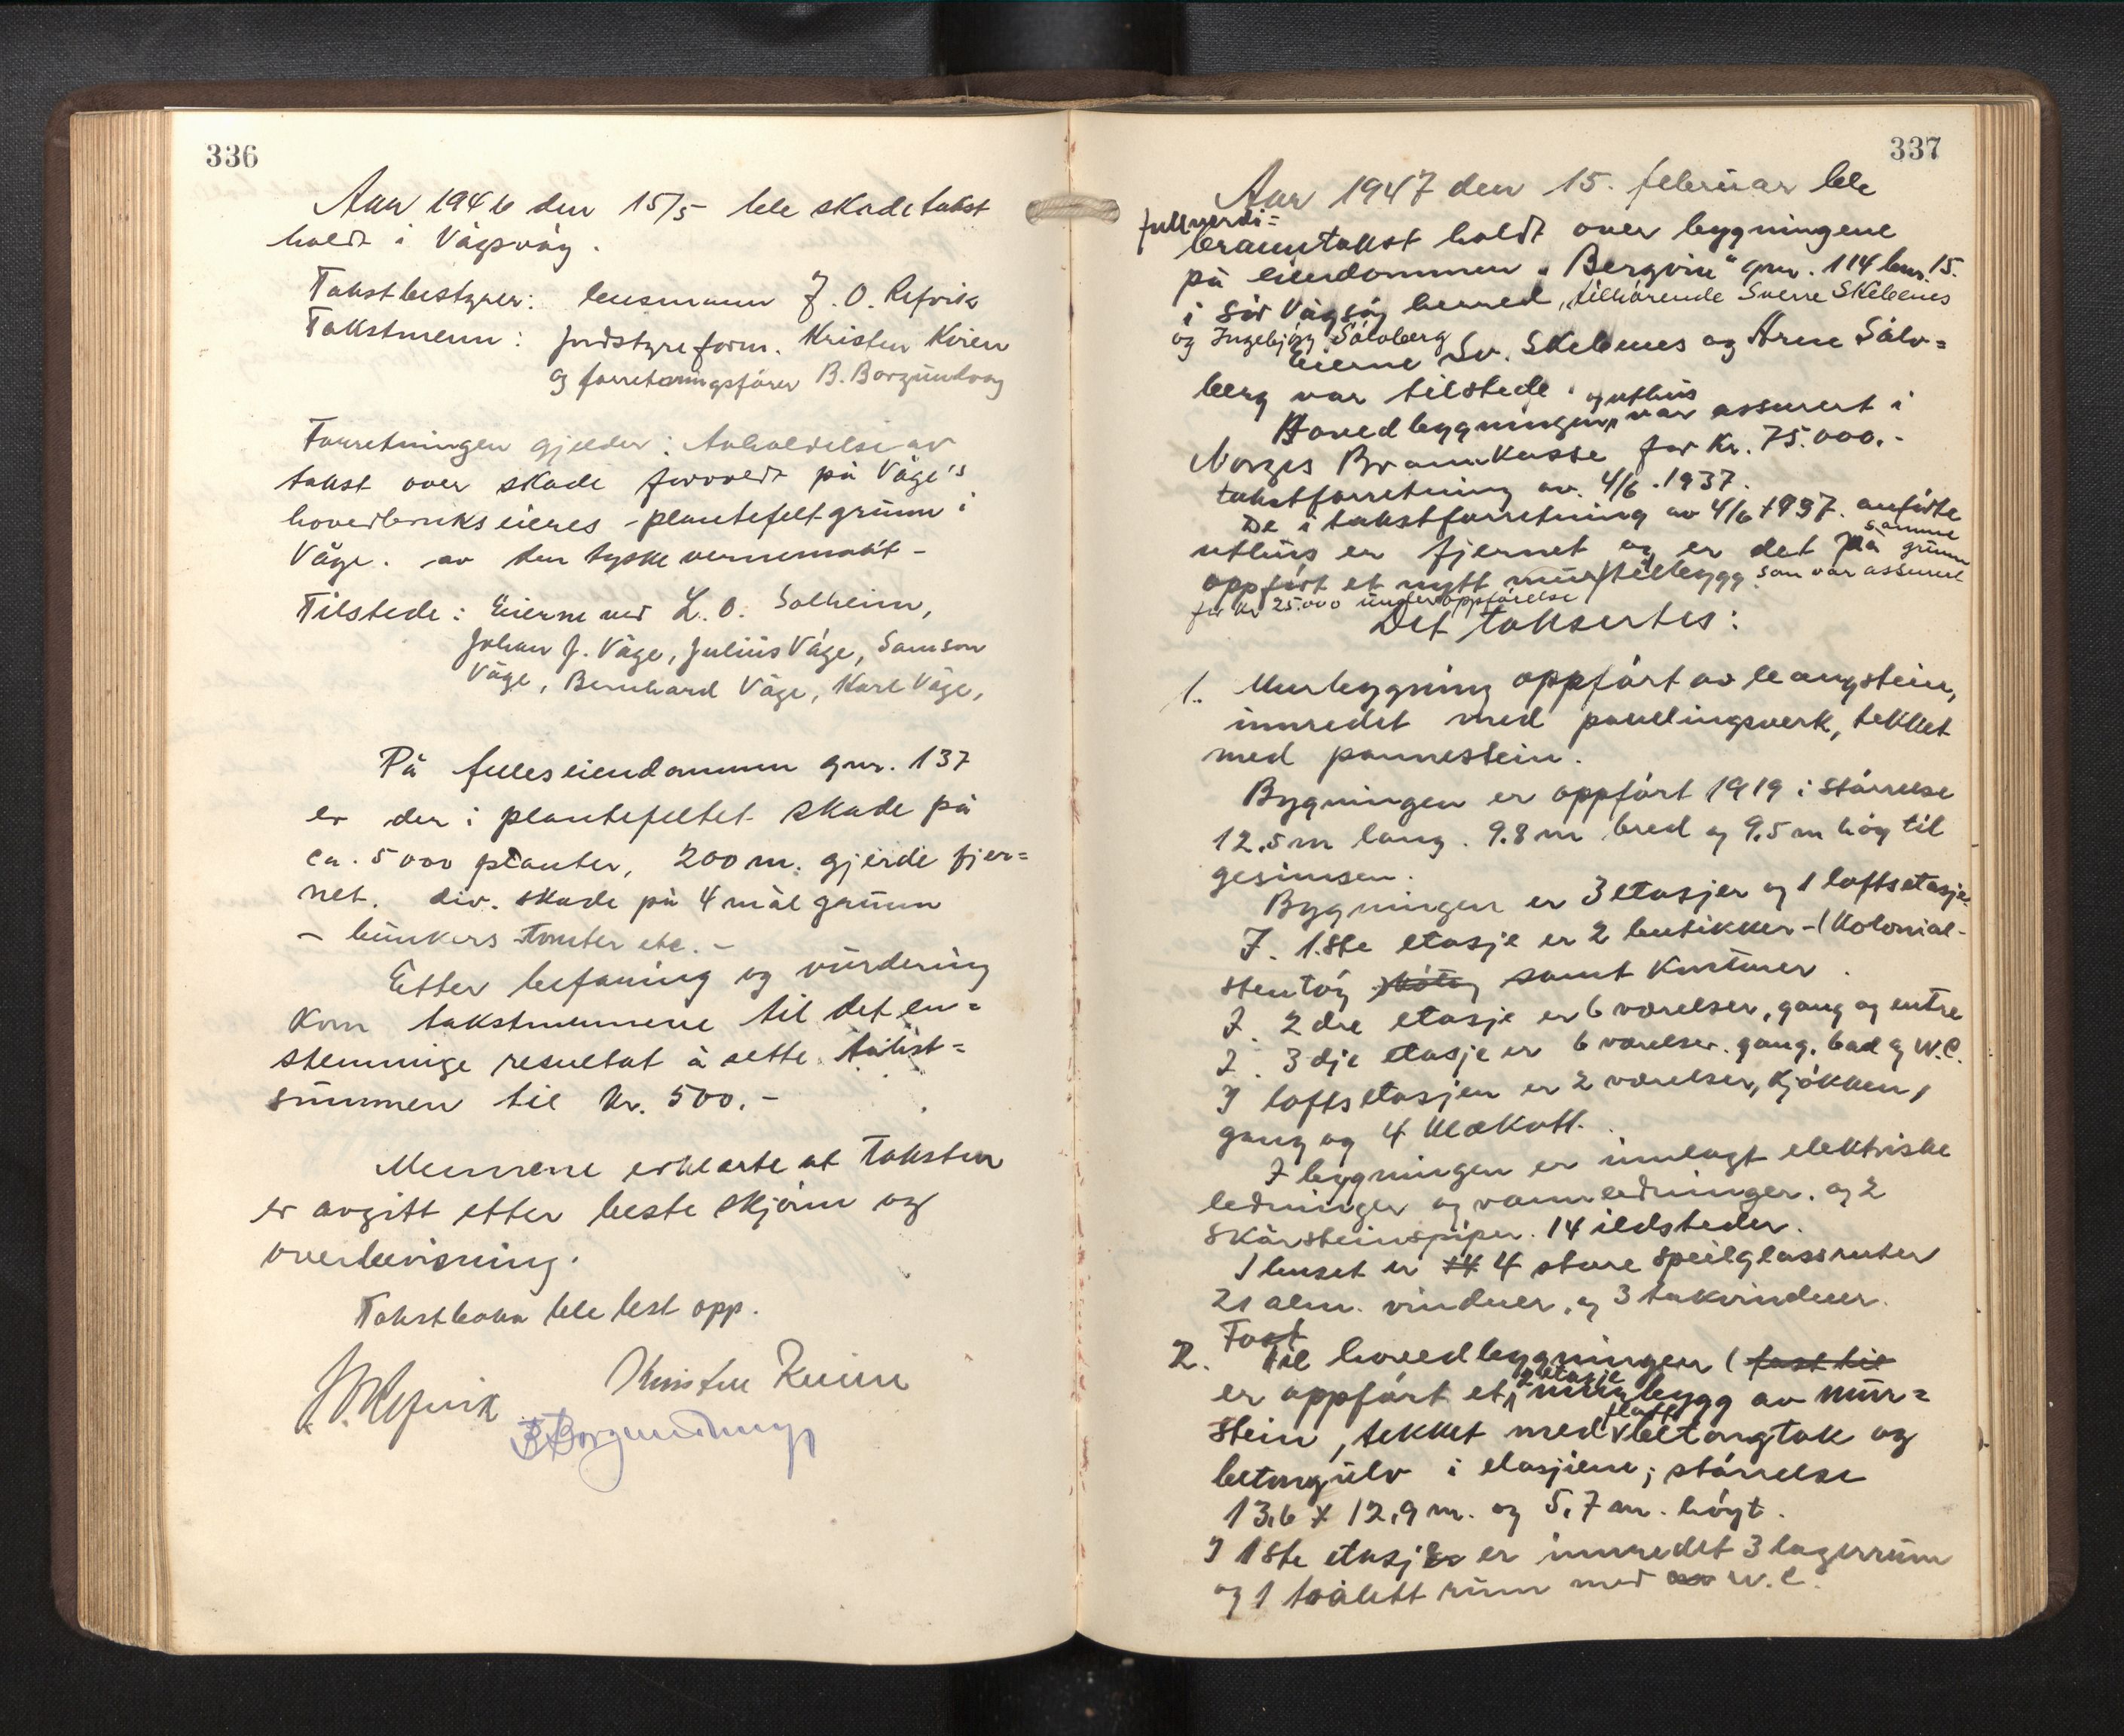 336
Aar 1946 den 15/5 ble skadetakst
holdt i Vågsvåg.
Takstbestyrer: lensmann J. O. Refvik
Takstmenn: Jordstyreform. Kristen Kvien
og forretningsfører B. Borgundvåg
Forretningen gjelder: Avholdelse av
takst over skade forvoldt på Våge's
hovedbrukseieres plantefelt grunn i
Våge. av den tyske vernemakt -
Tilstede: Eierne ved L. O. Solheim,
Johan J. Våge, Julius Våge, Samson
Våge, Bernhard Våge, Karl Våge,
På felleseiendommen gnr. 137
er der i plantefeltet skade på
ca. 5000 planter, 200 m. gjerde fjer=
net. div. skade på 4 mål grunn
- bunkers tomter etc. -
Etter befaring og vurdering
kom takstmennene til det en=
stemmige resultat å sette takst=
summen til kr. 500.-
Mennene erklærte at taksten
er avgitt etter beste skjønn og
overbevisning.
Takstboka ble lest opp.
J. O. Refvik Kristen Kvien
B Borgundvåg
337
Aar 1947 den 15. februar ble
fullverdi=
branntakst holdt over bygningene
på eiendommen "Bergvin" gnr. 114 bnr. 15.
i Sør Vågsøy herred, tilhørende Sverre Skebenes
og Ingebjørg Sålvberg
Eierne Sv. Skebenes og Arne Sålv=
berg var tilstede.
og uthus
Hovedbygningen var assurert i
Norges Brannkasse for Kr. 75.000.-
takstforretning av 4/6. 1937.
De i takstforretning av 4/6 1937. anførte
uthus er fjernet og er det på samme grunn
oppført et nytt mur tilbygg som var assurert
for kr 25.000 under oppførelse
Det taksertes:
1. Murbygning oppført av leangstein,
innredet med panelingsverk, tekket
med pannestein.
Bygningen er oppført 1919 i størrelse
12.5 m lang. 9.8 m bred og 9.5 m høg til
gesimsen.
Bygningen er 3 etasjer og 1 loftsetasje.
I. 1.ste etasje er 2 butikker - (Kolonial-
stentøy samt kontorer.
I. 2dre etasje er 6 værelser, gang og entre
I. 3dje etasje er 6 værelser. gang. bad og W.C.
I loftsetasjen er 2 værelser, kjøkken,
gang og 4 klækott.
I bygningen er innlagt elektriske
ledninger og vannledninger. og 2
skårsteinspiper. 14 ildsteder.
I huset er 14 4 store speilglassruter
21 alm. vinduer, og 3 takvinduer.
Fast
2. til hovedbygningen (fast til
er oppført et 2 etasje murbygg av mur=
stein, tekket med flatt betongtak og
betongulv i etasjene; størrelse
13,6 x 12,9 m. og 5,7 m. høyt.
I 1ste etasje er innredet 3 lagerrum
og 1 toalett rum med W.C.